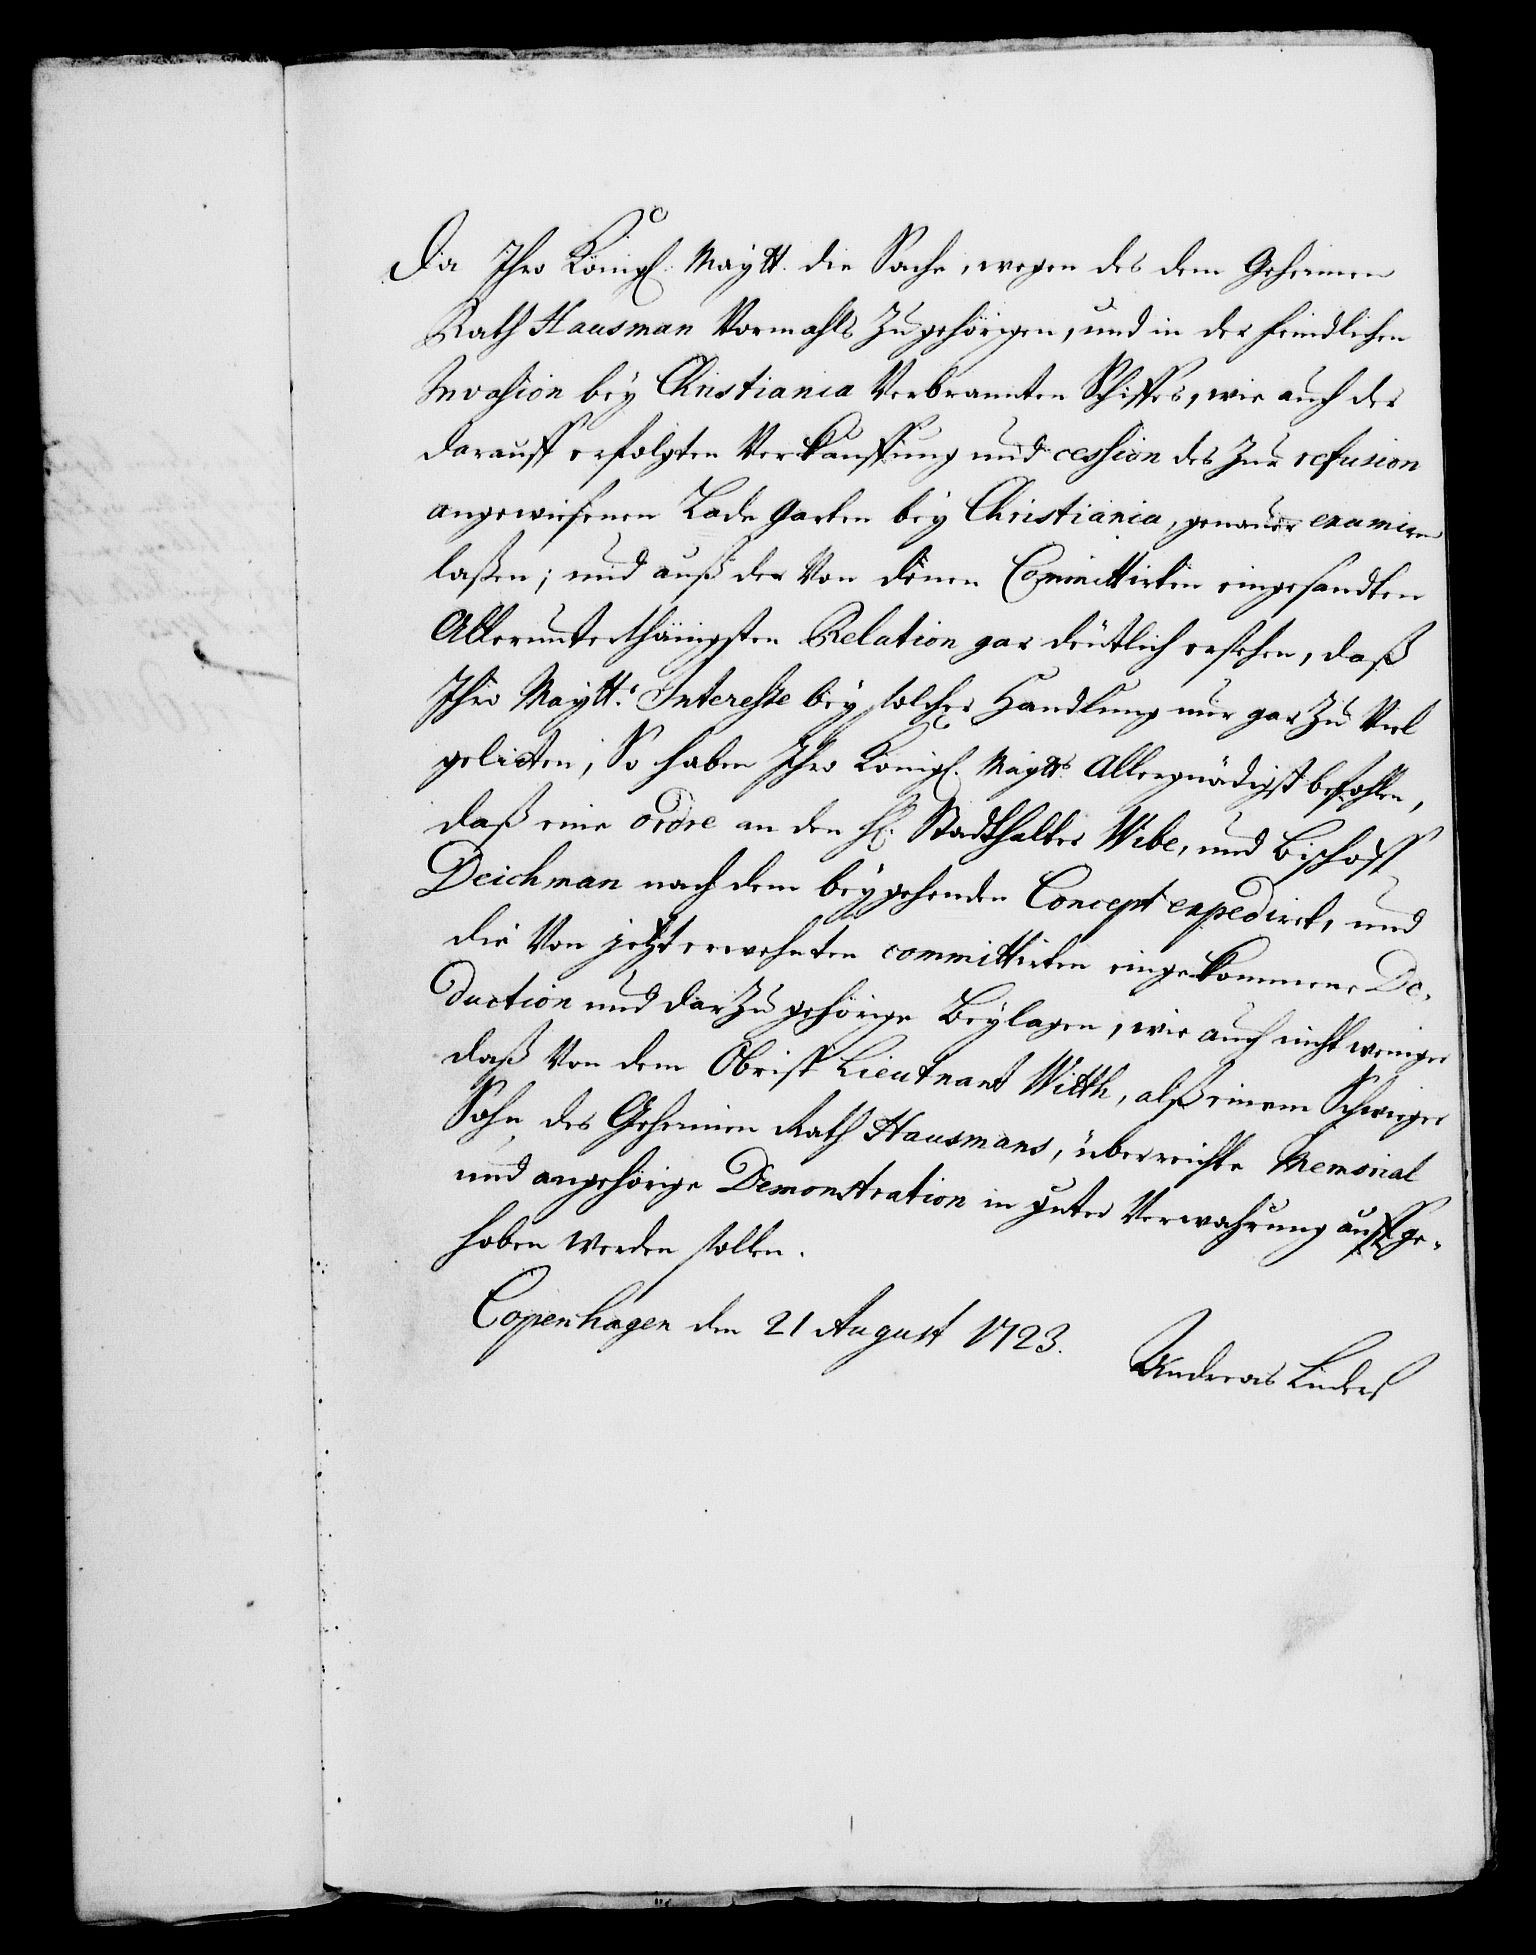 Da Ihro Königl. Maytt. die Sache, wegen des dem Geheimen
Rath Hausman Vormahls Zugehörigen, und in der feindlichen
Invasion bey Christiania Verbrannten Schiffes, wie auch der
darauff erfolgten Verkauffung und cession des Zur refusion
angewiesenen Lade Garten bey Christiania, genauer examiren
laßen; und auß der Von denen Committirten eingesandten
Allerunterthänigsten Relation gar deütlich ersehen, daß
Ihro Maytt. Interesse bey solcher Handlung nur gar Zu Viel
gelitten; So haben Ihro Königl. Maytt. Allergnädigst befohlen,
daß eine ordre an den H. Stadthalter Wibe, und Bischoff
Deichman nach dem beygehenden Concept expedirt, und
die Von jetzt erwehnten committirten eingekommene De-
duction und darzu gehörige Beylagen, wie auch nicht weniger
daß Von dem Obrist Lieutnant Witth, alß einem Schwieger
Sohn des Geheimen Rath Hausmans, überreichte Memorial
und angehörige Demonstration in guter Verwahrung auffge-
hoben werden sollen.
Copenhagen den 21 August 1723.
Andreas Linders